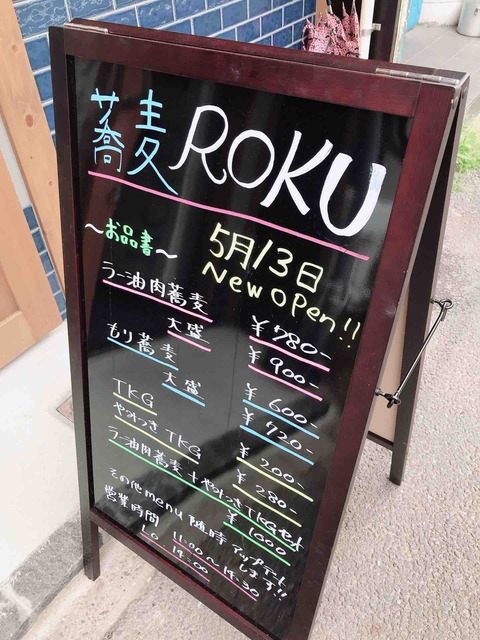 蕎麦 ROKU
〜お品書〜
5月13日
New open!!
ラー油肉蕎麦 ¥780-
大盛 ¥900-
もり蕎麦 ¥600-
大盛 ¥720-
TKG ¥200-
やみつきTKG ¥280-
ラー油肉蕎麦+やみつきTKGセット
¥1000
その他menu随時アップデート
します!!
営業時間 11:00〜14:30
L.O 14:00